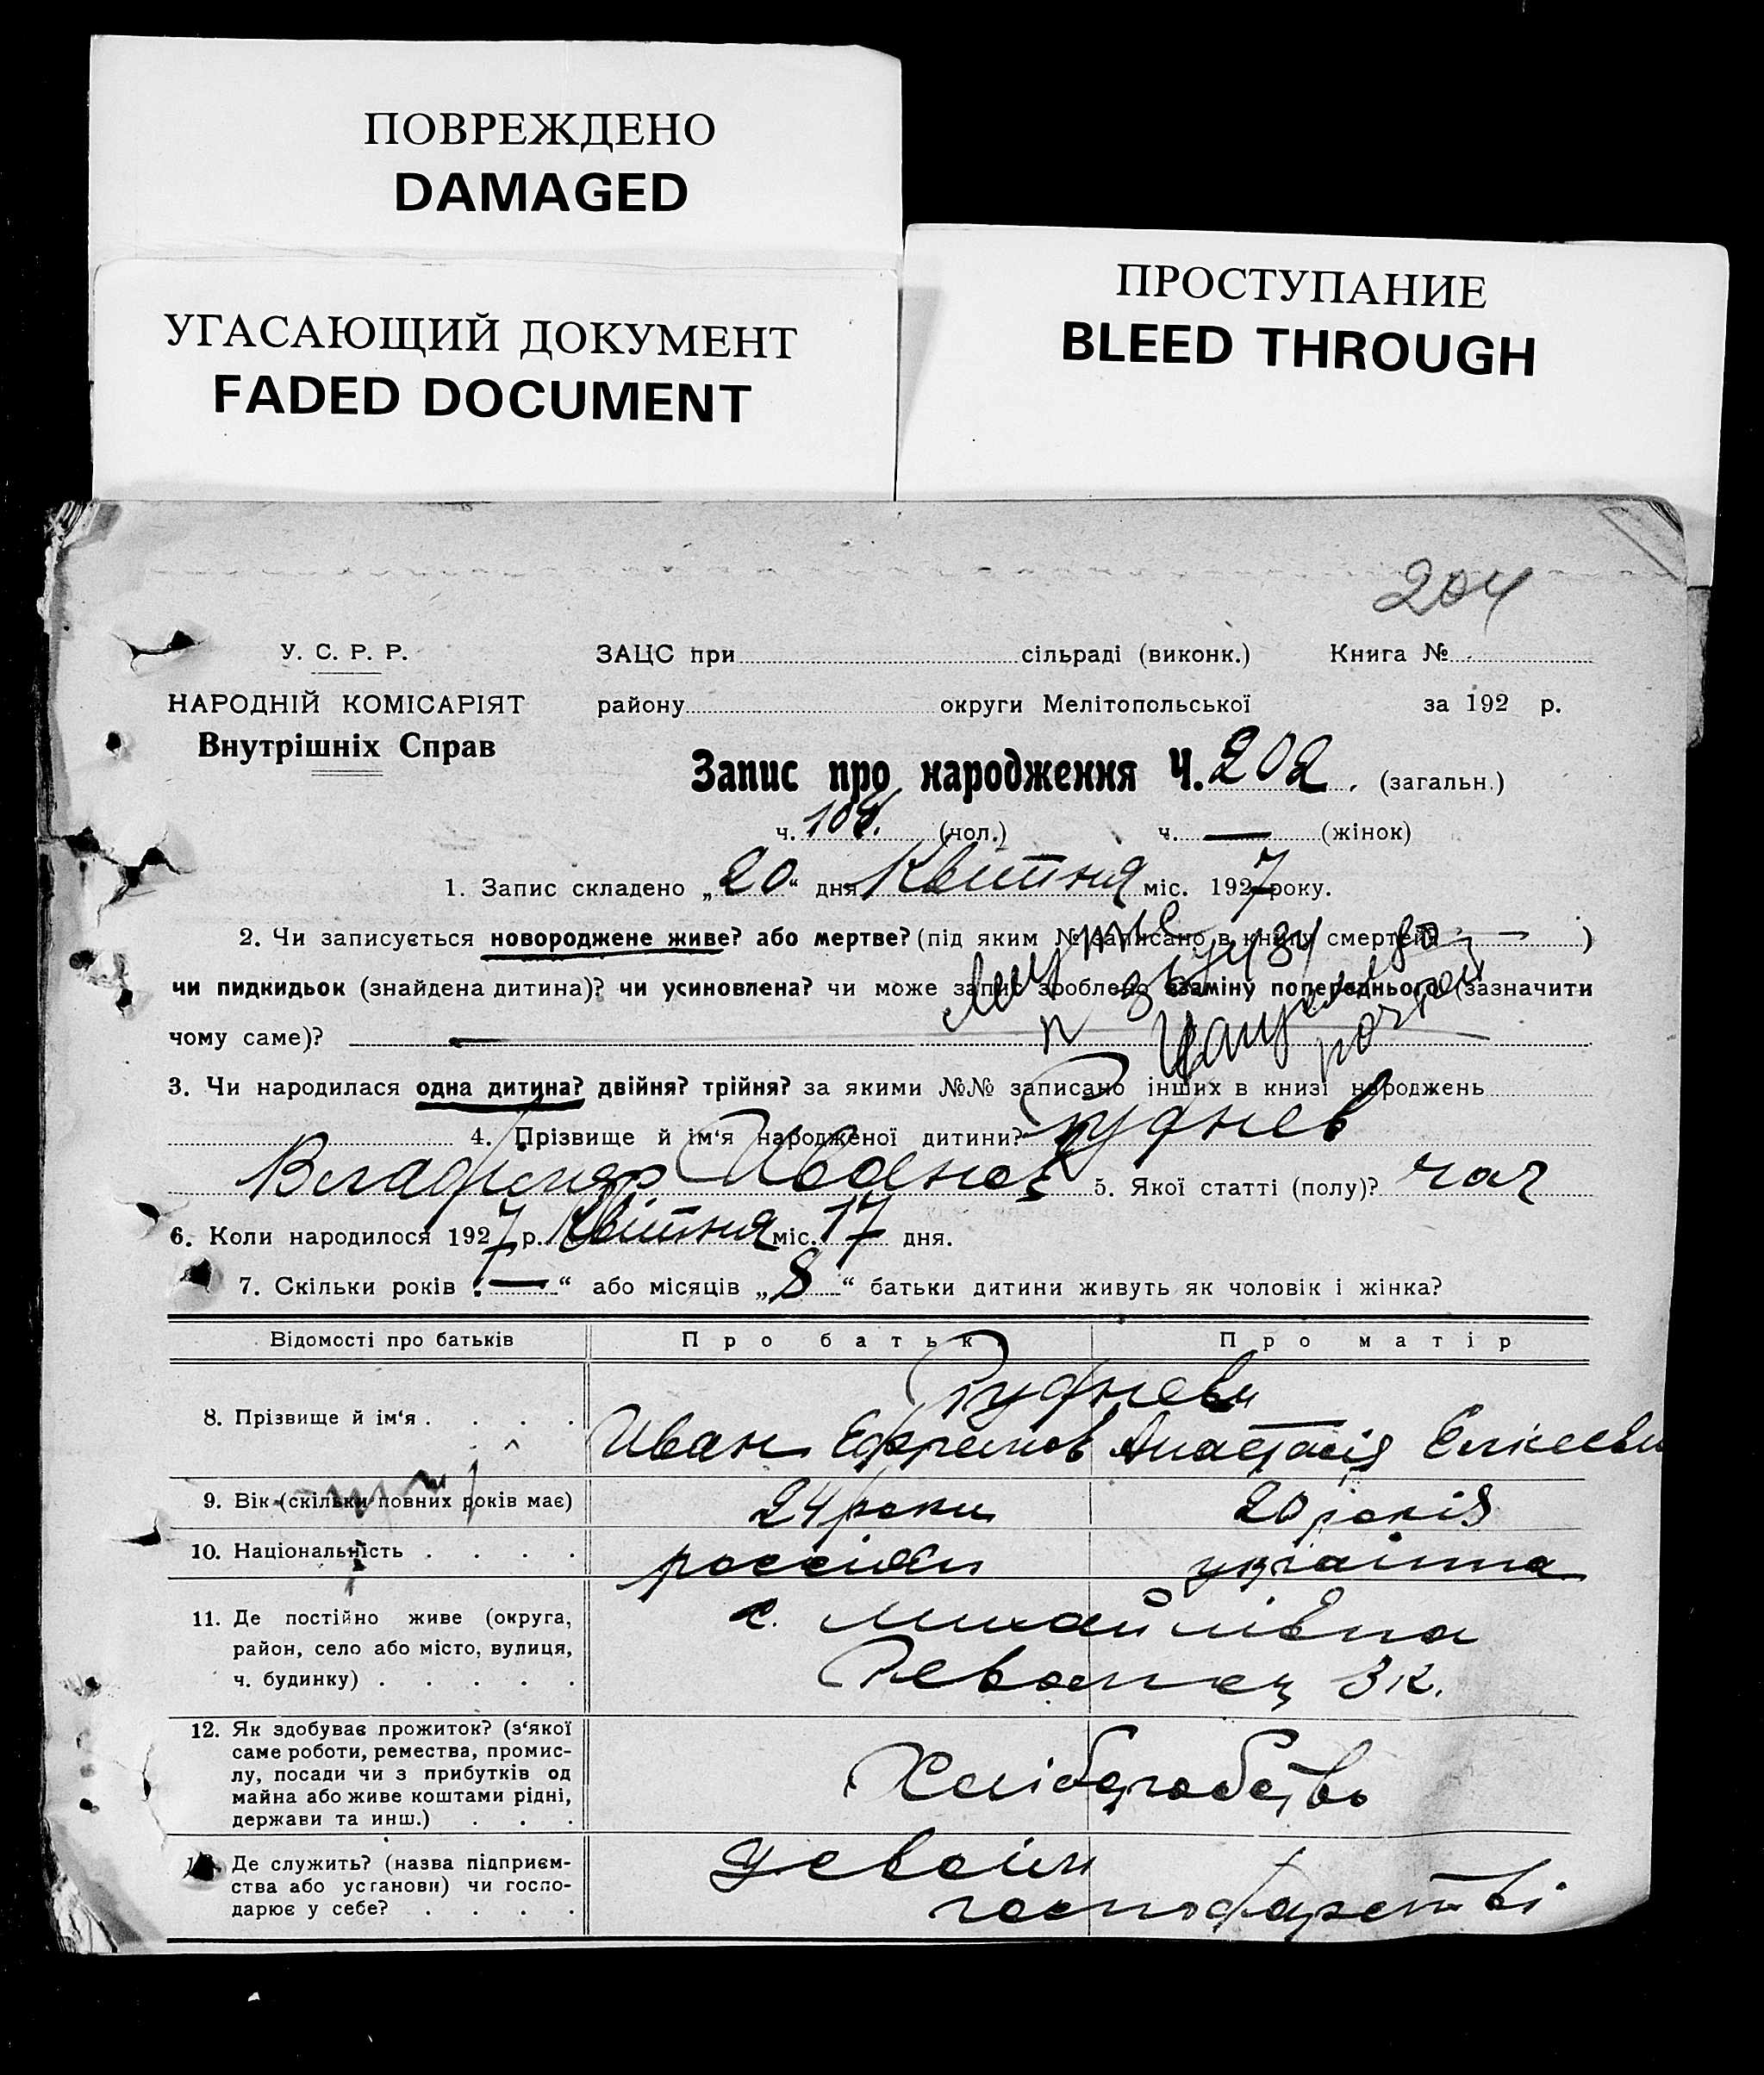 ПОВРЕЖДЕНО
DAMAGED
УГАСАЮЩИЙ ДОКУМЕНТ
FADED DOCUMENT
ПРОСТУПАНИЕ
BLEED THROUGH
204
У. С. Р. Р.
НАРОДНІЙ КОМІСАРІЯТ
Внутрішніх Справ
ЗАЦС при сільраді (виконк.) Книга №
району округи Мелітопольської за 192 р.
Запис про народження Ч. 202. (загальн.)
ч. 104. (чол.) ч. — (жінок)
1. Запис складено „20“ дня Квітня міс. 1927 року.
2. Чи записується новороджене живе? або мертве? (під яким № записано в книгу смертей — )
чи пидкидьок (знайдена дитина)? чи усиновлена? чи може запис зроблено взаміну попереднього (зазначити
чому саме)? —
3. Чи народилася одна дитина? двійня? трійня? за якими №№ записано інших в книзі народжень
4. Прізвище й ім‘я народженої дитини? Руднев
Владимир Иванов 5. Якої статті (полу)? чол
6. Коли народилося 1927 р. Квітня міс. 17 дня.
7. Скільки років „—“ або місяців „8“ батьки дитини живуть як чоловік і жінка?
Відомості про батьків Про батьк Про матір
Рудневы
8. Прізвище й ім‘я . . . . Иван Ефремов Анастасія Елісеевы
9. Вік (скільки повних років має) 24 роки 20 років
10. Національність . . . . россіян украінка
11. Де постійно живе (округа,
район, село або місто, вулиця,
ч. будинку) . . . . .
с. Михайлівка
Революц 3 к.
12. Як здобуває прожиток? (з‘якої
саме роботи, ремества, промис-
лу, посади чи з прибутків од
майна або живе коштами рідні,
держави та инш.) . . .
Хліборобство
Де служить? (назва підприєм-
ства або установи) чи госпо-
дарює у себе? . . . .
у своім
господарстві